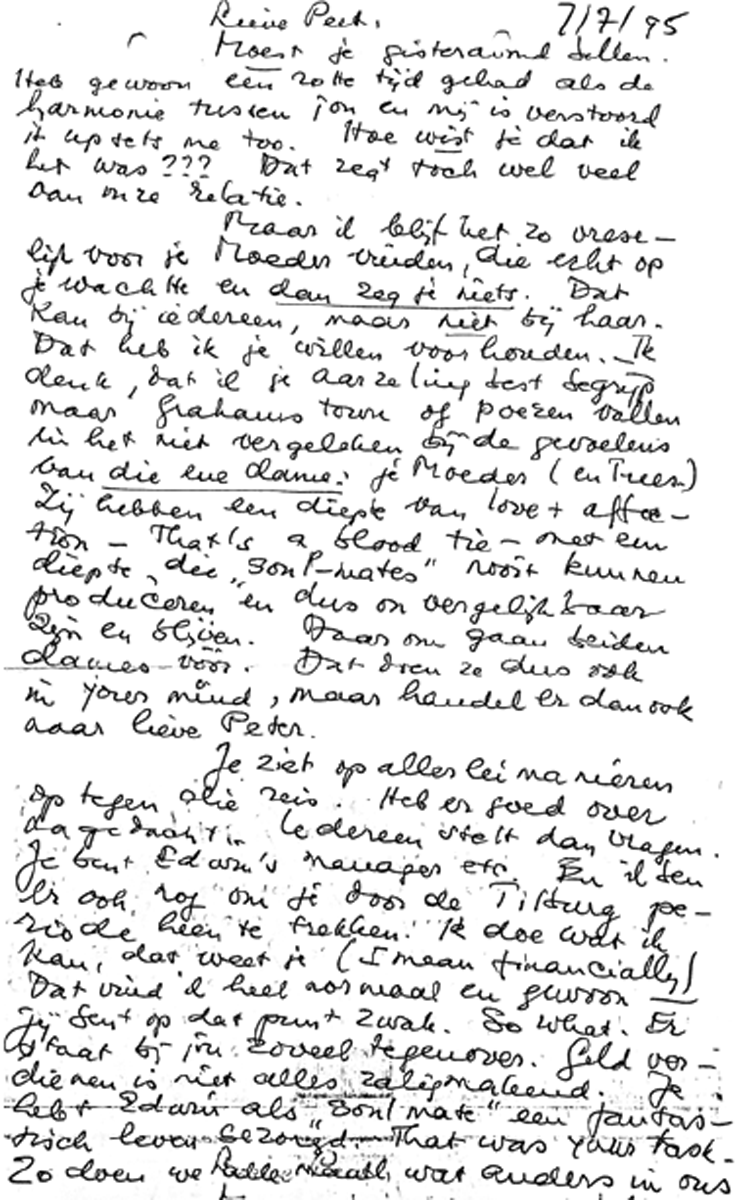 Lieve Peet. 7/7/95
Moest je gisteravond bellen.
Heb gewoon een rotte tijd gehad als de
harmonie tussen jou en mij is verstoord
it upsets me too. Hoe wist je dat ik
het was??? Dat zegt toch wel veel
aan onze relatie.
Maar ik blijf het zo vrese-
lijk voor je Moeder vinden, die echt op
je wachtte en dan zeg je niets. Dat
kan bij iedereen, maar niet bij haar.
Dat heb ik je willen voorhouden. Ik
denk, dat ik je aarzeling best begrijp
maar Grahamstown of poezen vallen
in het niet vergeleken bij de gevoelens
van die ene dame: je Moeder (en Trees)
Zij hebben een diepte van love + affec-
tion - That's a blood tie - met een
diepte, die "soul-mates" nooit kunnen
produceren en dus onvergelijkbaar
zijn en blijven. Daarom gaan beiden
dames vóór. Dat doen ze dus ook
in your mind, maar handel er dan ook
naar lieve Peter.
Je ziet op allerlei manieren
op tegen die reis. Heb er goed over
nagedacht. Iedereen stelt dan vragen.
Je bent Edwin's manager etc. En ik ben
er ook nog om je door de Tilburg pe-
riode heen te trekken. Ik doe wat ik
kan, dat weet je (I mean financially)
Dat vind ik heel normaal en gewoon
jij bent op dat punt zwak. So what. Er
staat bij jou zoveel tegenover. Geld ver-
dienen is niet alles zaligmakend. Je
hebt Edwin als "soul mate" een fantas-
tisch leven bezorgd. That was your task.
Zo doen we wat anders in ons